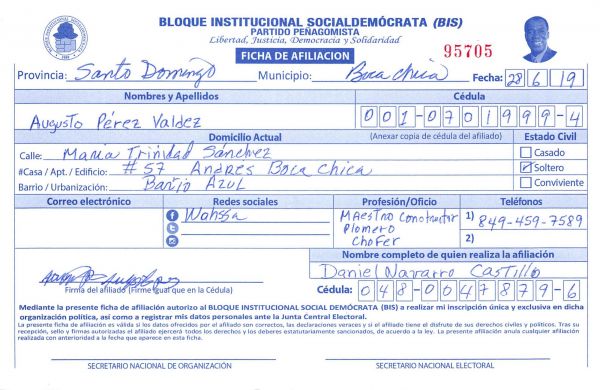 BLOQUE INSTITUCIONAL SOCIALDEMÓCRATA (BIS)
PARTIDO PEÑAGOMISTA
Libertad, Justicia, Democracia y Solidaridad
FICHA DE AFILIACION
95705
Provincia: Santo Domingo Municipio: Boca chica Fecha: 28 6 19
Nombres y Apellidos Cédula
Augusto Pérez Valdez 001-0701999-4
Domicilio Actual (Anexar copia de cédula del afiliado) Estado Civil
Calle: Maria Trinidad Sánchez Casado
#Casa / Apt. / Edificio: #57 Andres Boca Chica Soltero
Barrio / Urbanización: Barrio Azul Conviviente
Correo electrónico Redes sociales Profesión/Oficio Teléfonos
Maestro Constructor 1) 849-459-7589
Plomero
Chofer 2)
Nombre completo de quien realiza la afiliación
Daniel Navarro Castillo
Firma del afiliado (Firme igual que en la Cédula) Cédula: 048-0047879-6
Mediante la presente ficha de afiliación autorizo al BLOQUE INSTITUCIONAL SOCIAL DEMÓCRATA (BIS) a realizar mi inscripción única y exclusiva en dicha
organización política, así como a registrar mis datos personales ante la Junta Central Electoral.
La presente ficha de afiliación es válida si los datos ofrecidos por el afiliado son correctos, las declaraciones veraces y si el afiliado tiene el disfrute de sus derechos civiles y políticos. Tras su
recepción, sello y firmas autorizadas el afiliado ejercerá todos los derechos y los deberes estatutariamente sancionados, de acuerdo a la ley. La presente afiliación anula cualquier afiliación
realizada con anterioridad a la fecha que aparece en esta ficha.
SECRETARIO NACIONAL DE ORGANIZACIÓN SECRETARIO NACIONAL ELECTORAL